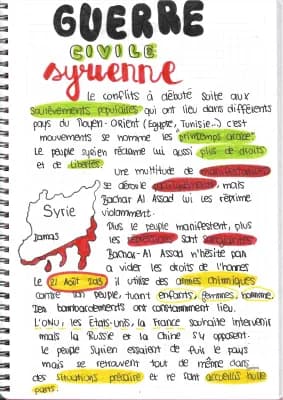 GUERRE
CIVILE
syrienne
Le conflits à débuté suite aux
soulèvements populaires qui ont lieu dans différents
pays du Moyen-Orient (Egypte, Tunisie...) c'est
mouvements se nomme les "printemps arabe".
Le peuple syrien réclame lui aussi plus de droits
et de libertés.
Une multitude de manifestations
se déroule pacifiquement, mais
Bachar Al Assad lui les réprime
violamment.
Syrie
Damas
Plus le peuple manifestent, plus
les répressions sont sanglantes
Bachar-Al Assad n'hésite pas
a vider les droits de l'homes
Le 21 Août 2013 il utilise des armes chimiques
contre son peuple, tuant enfants, femmes, homme.
Des bombardements ont constamment lieu.
L'ONU, les États-Unis, la France souhaité intervenir
mais la Russie et la Chine s'y opposent.
Le peuple Syrien essaient de fuir le pays
mais se retrouvent tout de même dans
des situations précaire et ne sont accueillis nulle
part.